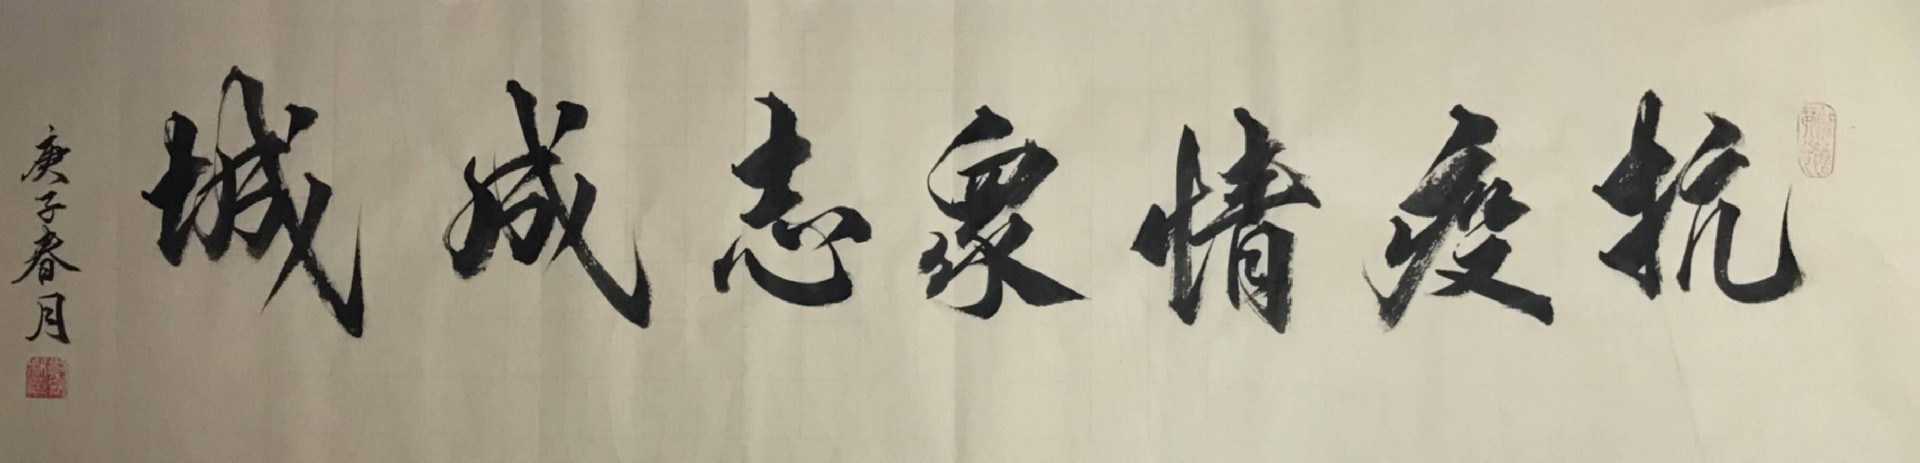 抗疫情衆志成城
庚子春月